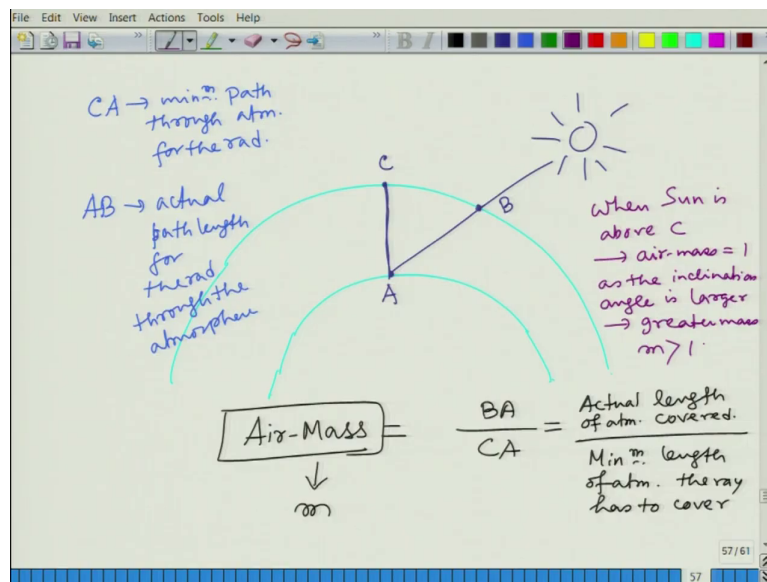 File Edit View Insert Actions Tools Help
B I
CA → minm. Path
through atm.
for the rad.
AB → actual
path length
for
the rad
through the
atmosphere
C
B
A
When Sun is
above C
→ air-mass = 1
as the inclination
angle is larger
→ greater mass
m > 1.
Air-Mass = BA / CA = Actual length of atm. covered. / Minm. length of atm. the ray has to cover
↓
m
57/61
57